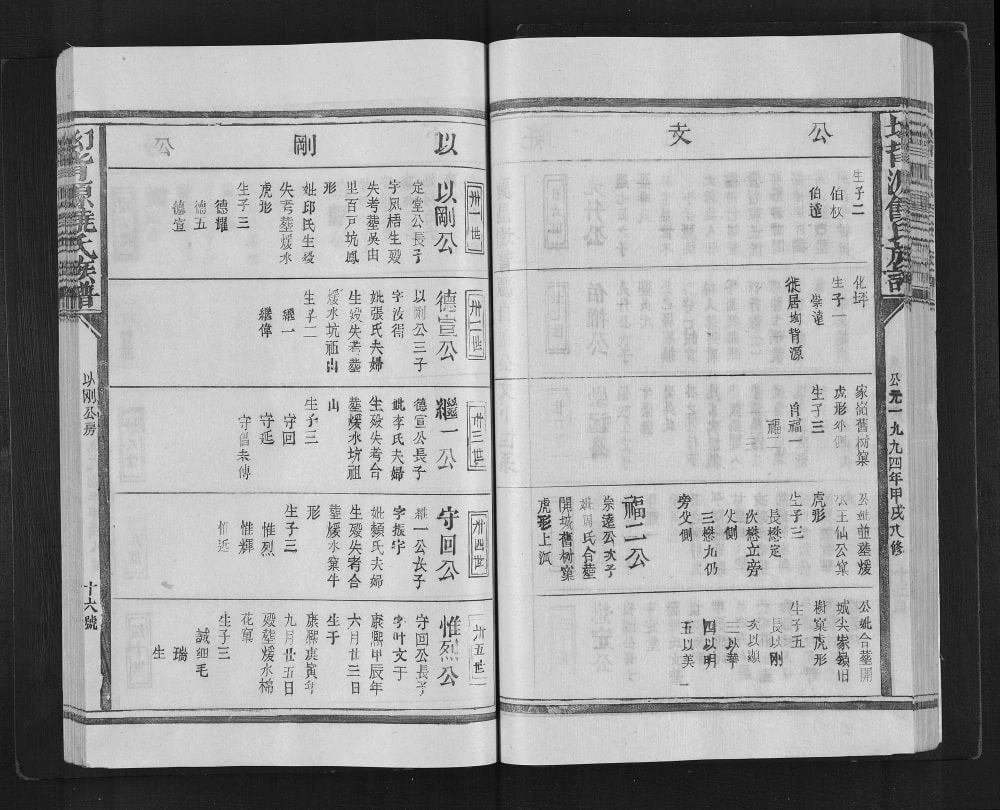 公 支
生子二
伯权
伯達
化坪
生子一
崇達
徙居坳背源
家嶺舊树窠
虎形外側
生子三
肖福一
福二
公妣並塟煖
水王仙公窠
虎形
生子三
長懋定
次懋立旁
父側
三懋九仍
旁父側
福二公
崇達公次子
妣周氏合塟
開城舊树窠
虎形上瓜
公妣合塟開
城尖家嶺旧
樹窠虎形
生子五
長以剛
次以顯
三以華
四以明
五以美
公元一九九四年甲戌八修
以 剛 公
卅一世
以剛公
定堂公長子
字凤梧生殁
失考塟吳由
里百戸坑鳳
形
妣邱氏生殁
失考塟煖水
虎形
生子三
德耀
德五
德宣
卅二世
德宣公
以剛公三子
字汝衙
妣張氏夫婦
生殁失考塟
煖水坑祖山
生子二
繼一
繼偉
卅三世
繼一公
德宣公長子
妣李氏夫婦
生殁失考合
塟煖水坊祖
山
生子三
守回
守延
守僖未傳
卅四世
守回公
繼一公長子
字振宇
妣賴氏夫婦
生殁失考合
塟煖水窠牛
形
生子三
惟烈
惟輝
惟延
卅五世
惟烈公
守回公長子
字叶文于
康熙甲辰年
六月廿三日
生于
康熙庚寅年
九月廿五日
殁塟煖水棉
花窠
生子三
誠细毛
瑞
生
坳背源饒氏族譜
以刚公房
十六號